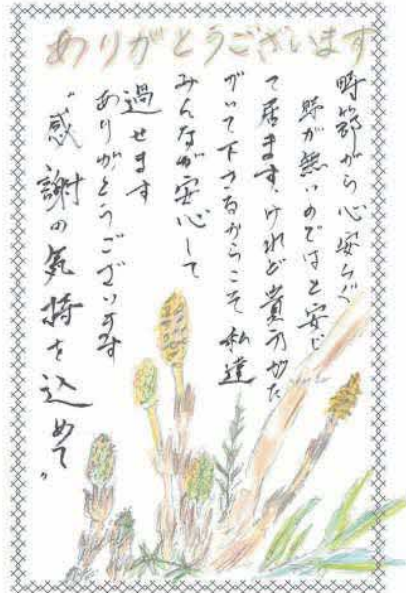 ありがとうございます
時節がら心安らぐ
時が無いのではと安じ
て居ます。けれど貴方がた
がいて下さるからこそ私達
みんなが安心して
過せます
ありがとうございます
“感謝の気持を込めて”